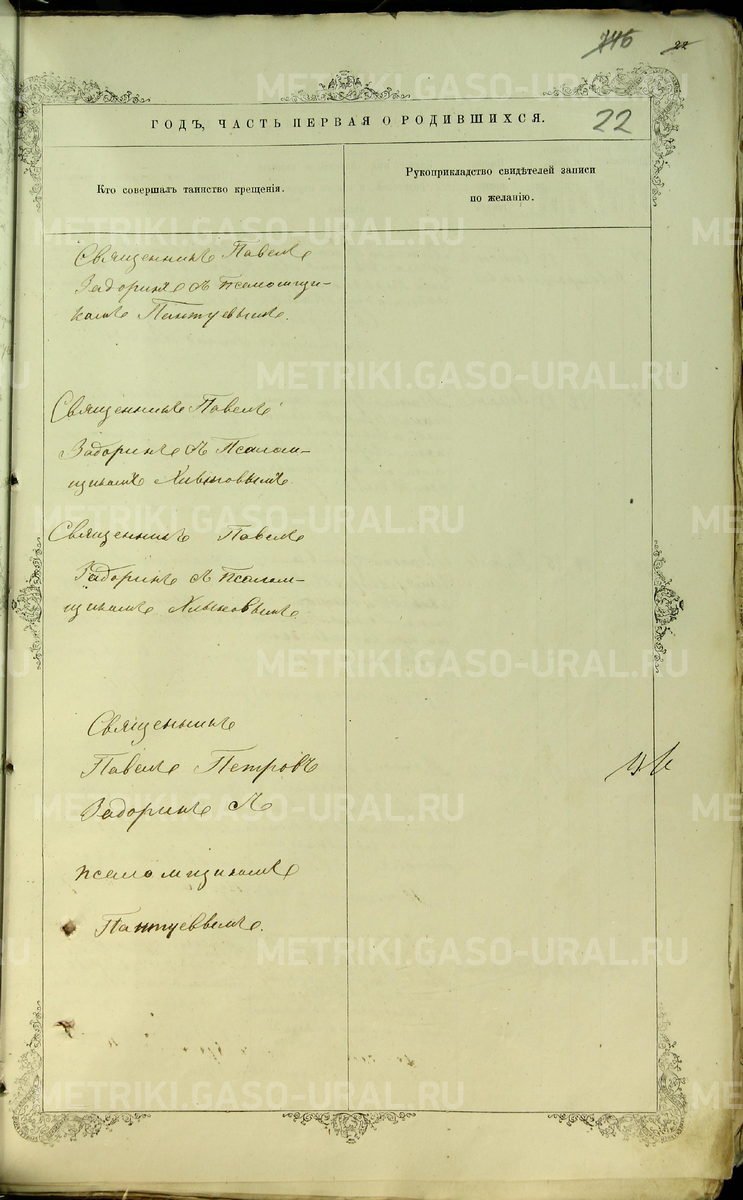 22
METRIKI.GASO-URAL.RU
ГОДЪ, ЧАСТЬ ПЕРВАЯ О РОДИВШИХСЯ.
22
Кто совершалъ таинство крещенія.
Рукоприкладство свидѣтелей записи
по желанію.
Священникъ Павелъ
Задоринъ съ Псаломщи-
комъ Пантуевымъ.
Священникъ Павелъ
Задоринъ съ Псалом-
щикомъ
Священникъ Павелъ
Задоринъ съ Псалом-
щикомъ Хлыновымъ
Священникъ
Павелъ Петровъ
Задоринъ съ
псаломщикомъ
Пантуевымъ.